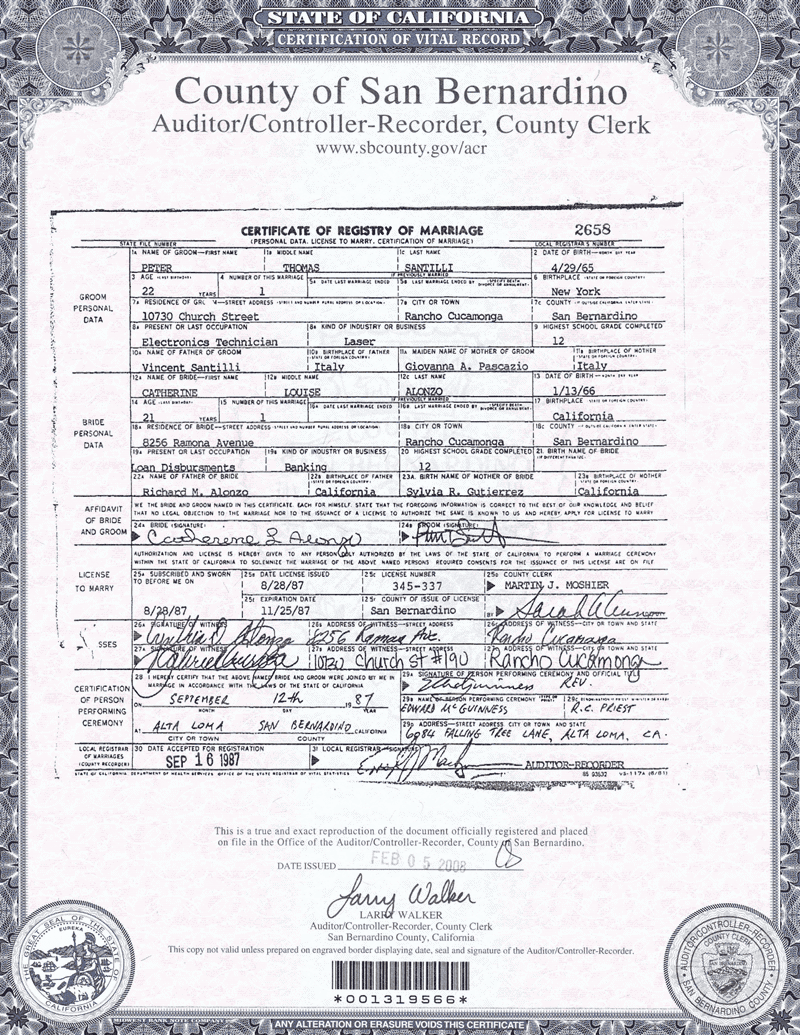 STATE OF CALIFORNIA
CERTIFICATION OF VITAL RECORD
County of San Bernardino
Auditor/Controller-Recorder, County Clerk
www.sbcounty.gov/acr
CERTIFICATE OF REGISTRY OF MARRIAGE 2658
STATE FILE NUMBER (PERSONAL DATA, LICENSE TO MARRY, CERTIFICATION OF MARRIAGE) LOCAL REGISTRAR'S NUMBER
GROOM PERSONAL DATA
1A NAME OF GROOM—FIRST NAME 1B MIDDLE NAME 1C LAST NAME 2 DATE OF BIRTH—MONTH DAY YEAR
PETER THOMAS SANTILLI 4/29/65
3 AGE (LAST BIRTHDAY) 4 NUMBER OF THIS MARRIAGE IF PREVIOUSLY MARRIED 5A DATE LAST MARRIAGE ENDED 5B LAST MARRIAGE ENDED BY 6 BIRTHPLACE
22 YEARS 1 New York
7A RESIDENCE OF STREET ADDRESS 7B CITY OR TOWN 7C COUNTY
10730 Church Street Rancho Cucamonga San Bernardino
8A PRESENT OR LAST OCCUPATION 8B KIND OF INDUSTRY OR BUSINESS 9 HIGHEST SCHOOL GRADE COMPLETED
Electronics Technician Laser 12
10A NAME OF FATHER OF GROOM 10B BIRTHPLACE OF FATHER 11A MAIDEN NAME OF MOTHER OF GROOM 11B BIRTHPLACE OF MOTHER
Vincent Santilli Italy Giovanna A. Pascazio Italy
BRIDE PERSONAL DATA
12A NAME OF BRIDE—FIRST NAME 12B MIDDLE NAME 12C LAST NAME 13 DATE OF BIRTH—MONTH DAY YEAR
CATHERINE LOUISE ALONZO 1/13/66
14 AGE (LAST BIRTHDAY) 15 NUMBER OF THIS MARRIAGE IF PREVIOUSLY MARRIED 16A DATE LAST MARRIAGE ENDED 16B LAST MARRIAGE ENDED BY 17 BIRTHPLACE
21 YEARS 1 California
18A RESIDENCE OF BRIDE—STREET ADDRESS 18B CITY OR TOWN 18C COUNTY
8256 Ramona Avenue Rancho Cucamonga San Bernardino
19A PRESENT OR LAST OCCUPATION 19B KIND OF INDUSTRY OR BUSINESS 20 HIGHEST SCHOOL GRADE COMPLETED 21 BIRTH NAME OF BRIDE
Loan Disbursments Banking 12
22A NAME OF FATHER OF BRIDE 22B BIRTHPLACE OF FATHER 23A BIRTH NAME OF MOTHER OF BRIDE 23B BIRTHPLACE OF MOTHER
Richard M. Alonzo California Sylvia R. Gutierrez California
AFFIDAVIT OF BRIDE AND GROOM
WE THE BRIDE AND GROOM NAMED IN THIS CERTIFICATE, EACH FOR HIMSELF, STATE THAT THE FOREGOING INFORMATION IS CORRECT TO THE BEST OF OUR KNOWLEDGE AND BELIEF
THAT NO LEGAL OBJECTION TO THE MARRIAGE NOR TO THE ISSUANCE OF A LICENSE TO AUTHORIZE THE SAME IS KNOWN TO US AND HEREBY APPLY FOR LICENSE TO MARRY
24A BRIDE (SIGNATURE) 24B GROOM (SIGNATURE)
LICENSE TO MARRY
AUTHORIZATION AND LICENSE IS HEREBY GIVEN TO ANY PERSON DULY AUTHORIZED BY THE LAWS OF THE STATE OF CALIFORNIA TO PERFORM A MARRIAGE CEREMONY
WITHIN THE STATE OF CALIFORNIA TO SOLEMNIZE THE MARRIAGE OF THE ABOVE NAMED PERSONS REQUIRED CONSENTS FOR THE ISSUANCE OF THIS LICENSE ARE ON FILE
25A SUBSCRIBED AND SWORN TO BEFORE ME ON 25B DATE LICENSE ISSUED 25C LICENSE NUMBER 25D COUNTY CLERK
8/28/87 345-337 MARTIN J. MOSHIER
25E EXPIRATION DATE 25F COUNTY OF ISSUE OF LICENSE
8/28/87 11/25/87 San Bernardino BY
SSES
26A SIGNATURE OF WITNESS 26B ADDRESS OF WITNESS—STREET ADDRESS 26C ADDRESS OF WITNESS—CITY OR TOWN AND STATE
8256 Ramona Ave. Rancho Cucamonga
27A SIGNATURE OF WITNESS 27B ADDRESS OF WITNESS—STREET ADDRESS 27C ADDRESS OF WITNESS—CITY OR TOWN AND STATE
10730 Church St #190 Rancho Cucamonga
CERTIFICATION OF PERSON PERFORMING CEREMONY
28 I HEREBY CERTIFY THAT THE ABOVE NAMED BRIDE AND GROOM WERE JOINED BY ME IN
MARRIAGE IN ACCORDANCE WITH THE LAWS OF THE STATE OF CALIFORNIA
29A SIGNATURE OF PERSON PERFORMING CEREMONY AND OFFICIAL TITLE
REV.
ON SEPTEMBER 12th 1987
MONTH DAY YEAR
29B NAME OF PERSON PERFORMING CEREMONY
EDWARD MCGUINNESS R.C. PRIEST
AT ALTA LOMA SAN BERNARDINO, CALIFORNIA
CITY OR TOWN COUNTY
29D ADDRESS—STREET ADDRESS CITY OR TOWN AND STATE
6984 FALLING TREE LANE, ALTA LOMA, CA.
LOCAL REGISTRAR OF MARRIAGES (COUNTY RECORDER)
30 DATE ACCEPTED FOR REGISTRATION 31 LOCAL REGISTRAR—SIGNATURE
SEP 16 1987 AUDITOR-RECORDER
STATE OF CALIFORNIA DEPARTMENT OF HEALTH SERVICES OFFICE OF THE STATE REGISTRAR OF VITAL STATISTICS 85 93532 VS-117A (6/81)
This is a true and exact reproduction of the document officially registered and placed
on file in the Office of the Auditor/Controller-Recorder, County of San Bernardino.
DATE ISSUED FEB 05 2008
Larry Walker
LARRY WALKER
Auditor/Controller-Recorder, County Clerk
San Bernardino County, California
This copy not valid unless prepared on engraved border displaying date, seal and signature of the Auditor/Controller-Recorder.
*001319566*
THE GREAT SEAL OF THE STATE OF CALIFORNIA
EUREKA
AUDITOR/CONTROLLER-RECORDER
COUNTY CLERK
SAN BERNARDINO COUNTY
MIDWEST BANK NOTE COMPANY
ANY ALTERATION OR ERASURE VOIDS THIS CERTIFICATE